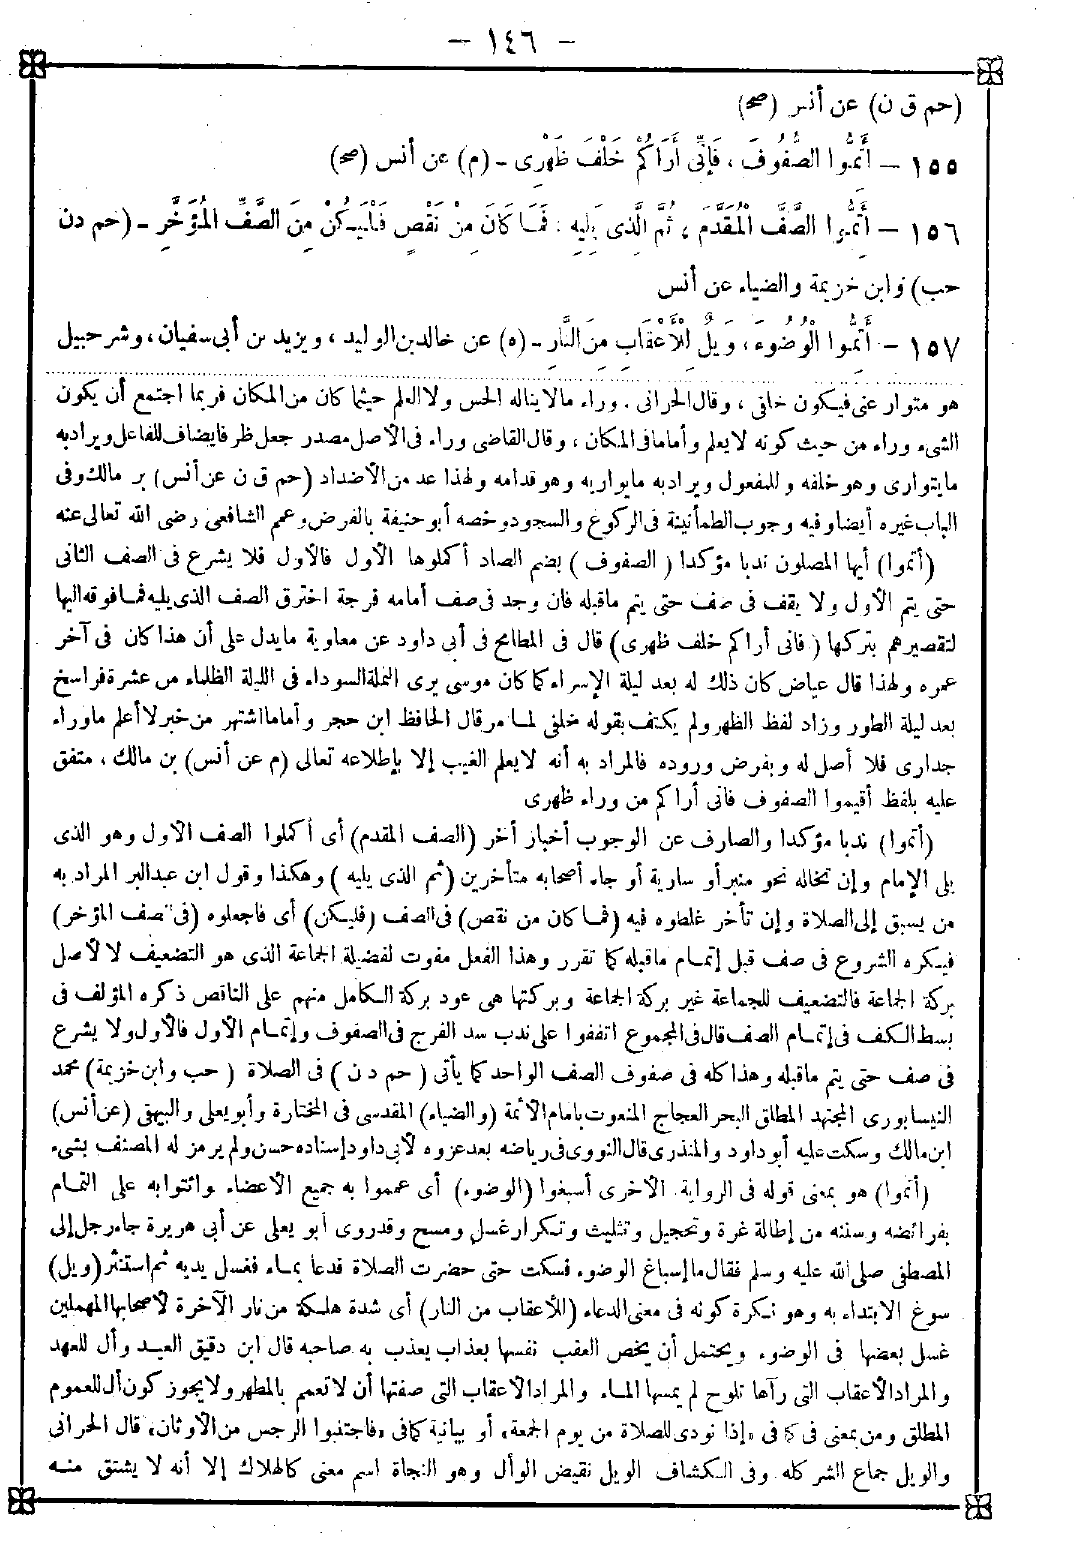 - ١٤٦ -
(حم ق ن) عن أنس (صح)
١٥٥ - أَتِمُّوا الصُّفُوفَ ، فَإِنِّى أَرَاكُمْ خَلْفَ ظَهْرِى - (م) عن أنس (صح)
١٥٦ - أَتِمُّوا الصَّفَّ الْمُقَدَّمَ ، ثُمَّ الَّذِى يَلِيهِ ؛ فَمَا كَانَ مِنْ نَقْصٍ فَلْيَكُنْ مِنَ الصَّفِّ الْمُؤَخَّرِ - (حم دن
حب) وابن خزيمة والضياء عن أنس
١٥٧ - أَتِمُّوا الْوُضُوءَ ، وَيْلٌ لِلْأَعْقَابِ مِنَ النَّارِ - (ه) عن خالد بن الوليد ، ويزيد بن أبى سفيان ، وشرحبيل
هو متوار عنى فيكون خلفى ، وقال الحرانى . وراء مالايناله الحس ولا العلم حيثما كان من المكان فربما اجتمع أن يكون
الشىء وراء من حيث كونه لايعلم وأماما فى المكان ، وقال القاضى وراء فى الأصل مصدر جعل ظرفا يضاف للفاعل ويراد به
مايتوارى وهو خلفه وللمفعول ويراد به مايواريه وهو قدامه ولهذا عد من الأضداد (حم ق ن عن أنس) بن مالك وفى
الباب غيره أيضا وفيه وجوب الطمأنينة فى الركوع والسجود وخصه أبو حنيفة بالفرض وعمم الشافعى رضى الله تعالى عنه
(أتموا) أيها المصلون ندبا مؤكدا (الصفوف) بضم الصاد أكملوها الأول فالأول فلا يشرع فى الصف الثانى
حتى يتم الأول ولا يقف فى صف حتى يتم ماقبله فان وجد فى صف أمامه فرجة اخترق الصف الذى يليه فما فوقه اليها
لتقصيرهم بتركها (فانى أراكم خلف ظهرى) قال فى المطامح فى أبى داود عن معاوية مايدل على أن هذا كان فى آخر
عمره ولهذا قال عياض كان ذلك له بعد ليلة الإسراء كما كان موسى يرى النملة السوداء فى الليلة الظلماء من عشرة فراسخ
بعد ليلة الطور وزاد لفظ الظهر ولم يكتف بقوله خلفى لما مر قال الحافظ ابن حجر وأما ما اشتهر من خبر لا أعلم ماوراء
جدارى فلا أصل له وبفرض وروده فالمراد به أنه لايعلم الغيب إلا بإطلاعه تعالى (م عن أنس) بن مالك ، متفق
عليه بلفظ أقيموا الصفوف فانى أراكم من وراء ظهرى
(أتموا) ندبا مؤكدا والصارف عن الوجوب أخبار أخر (الصف المقدم) أى أكملوا الصف الأول وهو الذى
يلى الإمام وإن تخاله نحو منبر أو سارية أو جاء أصحابه متأخرين (ثم الذى يليه) وهكذا وقول ابن عبد البر المراد به
من يسبق إلى الصلاة وإن تأخر غلطوه فيه (فما كان من نقص) فى الصف (فليكن) أى فاجعلوه (فى الصف المؤخر)
فيكره الشروع فى صف قبل إتمام ماقبله كما تقرر وهذا الفعل مفوت لفضيلة الجماعة الذى هو التضعيف لا لأصل
بركة الجماعة فالتضعيف للجماعة غير بركة الجماعة وبركتها هى عود بركة الكامل منهم على الناقص ذكره المؤلف فى
بسط الكف فى إتمام الصف قال فى المجموع اتفقوا على ندب سد الفرج فى الصفوف وإتمام الأول فالأول ولا يشرع
فى صف حتى يتم ماقبله وهذا كله فى صفوف الصف الواحد كما يأتى (حم د ن) فى الصلاة (حب وابن خزيمة) محمد
النيسابورى المجتهد المطلق البحر العجاج المنعوت بامام الأئمة (والضياء) المقدسى فى المختارة وأبو يعلى والبيهقى (عن أنس)
ابن مالك وسكت عليه أبو داود والمنذرى قال النووى فى رياضه بعد عزوه لأبى داود إسناده حسن ولم يرمز له المصنف بشىء
(أتموا) هو بمعنى قوله فى الرواية الأخرى أسبغوا (الوضوء) أى عمموا به جميع الأعضاء وائتوا به على التمام
بفرائضه وسننه من إطالة غرة وتحجيل وتثليث وتكرار غسل ومسح وقد روى أبو يعلى عن أبى هريرة جاء رجل إلى
المصطفى صلى الله عليه وسلم فقال ما إسباغ الوضوء فسكت حتى حضرت الصلاة فدعا بماء فغسل يديه ثم استنثر (ويل)
سوغ الابتداء به وهو نكرة كونه فى معنى الدعاء (للأعقاب من النار) أى شدة هلكة من نار الآخرة لأصحابها المهملين
غسل بعضها فى الوضوء ويحتمل أن يخص العقب نفسها بعذاب يعذب به صاحبه قال ابن دقيق العيد وأل للعهد
والمراد الأعقاب التى رآها تلوح لم يمسها الماء والمراد الأعقاب التى صفتها أن لا تعمم بالمطهر ولايجوز كون أل للعموم
المطلق ومن بمعنى فى كما فى «إذا نودى للصلاة من يوم الجمعة» أو بيانية كما فى «فاجتنبوا الرجس من الأوثان» قال الحرانى
والويل جماع الشر كله وفى الكشاف الويل نقيض الوأل وهو النجاة اسم معنى كالهلاك إلا أنه لا يشتق منه